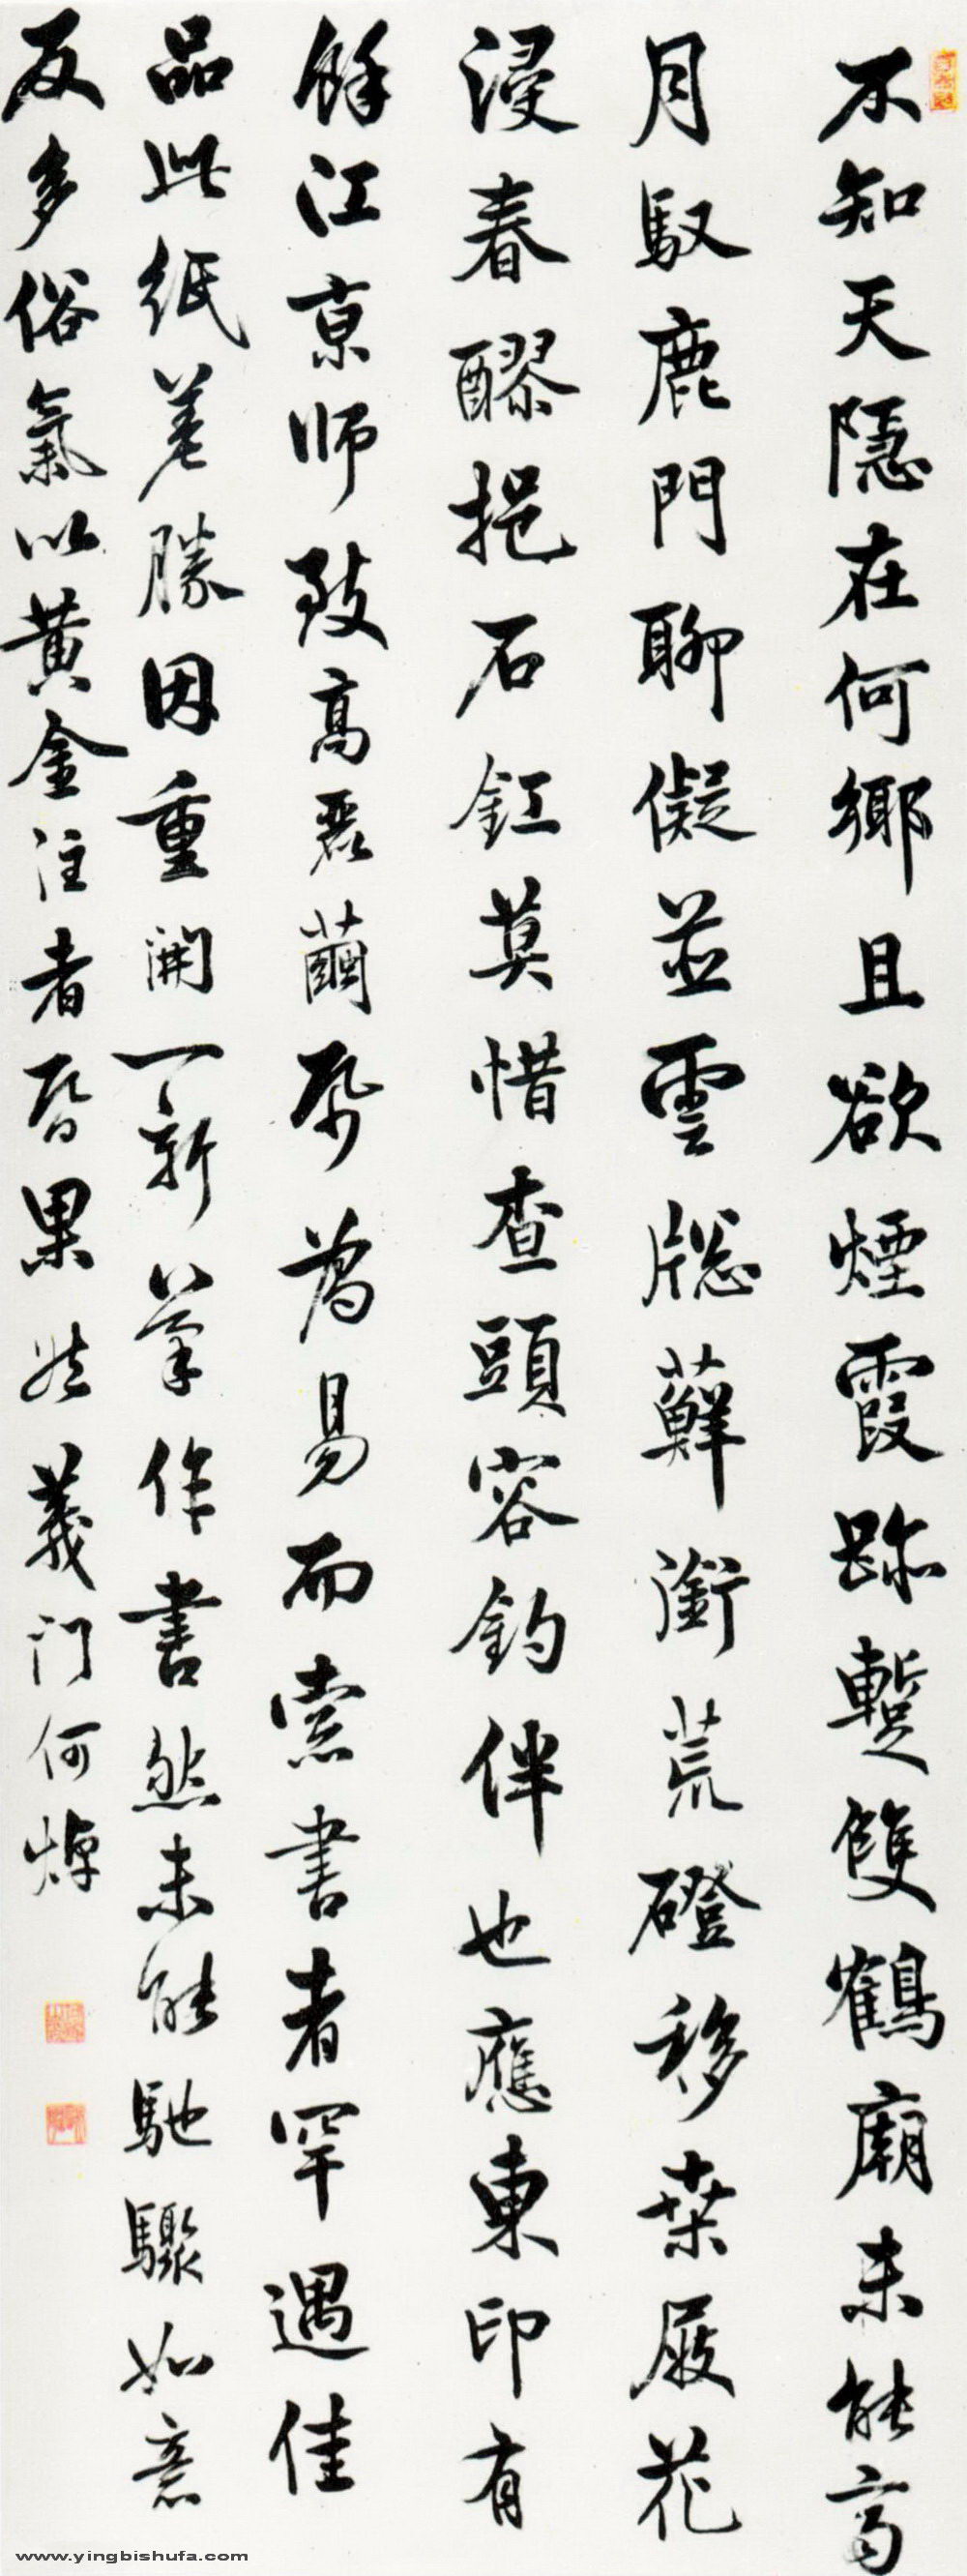 不知天隱在何鄉且欲煙霞跡蹔雙鶴廟未能齊
月馭鹿門聊儗並雲牕蘚銜荒磴移桒屐花
浸春醪挹石釭莫惜查頭容釣伴也應東印有
餘江京師致高麗繭帋為易而索書者罕遇佳
品此紙差勝因重開一新筆作書然未能馳驟如意
反多俗氣以黃金注者昏果然義門何焯
www.yingbishufa.com